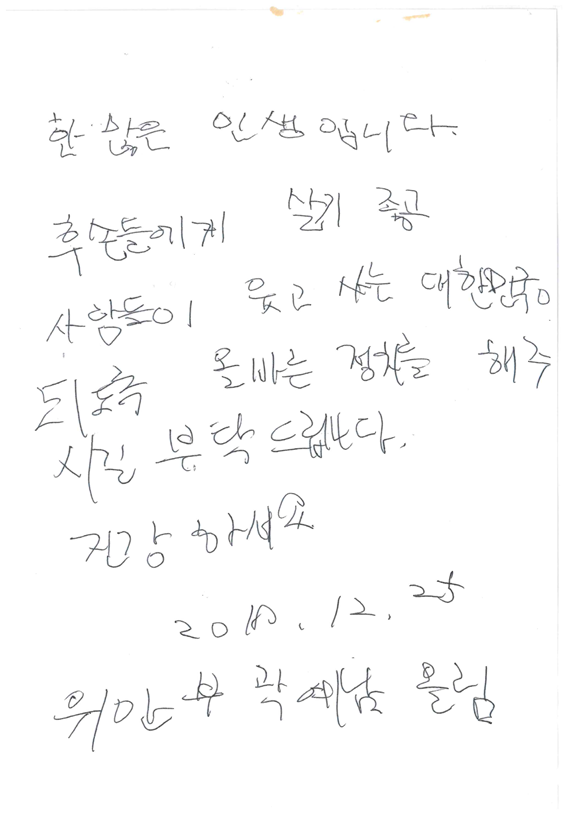 한 많은 인생입니다.
후손들에게 살기 좋고
사람들이 웃고 사는 대한민국이
되도록 올바른 정치를 해주
시길 부탁드립니다.
건강하세요
2018. 12. 25
위안부 곽예남 올림